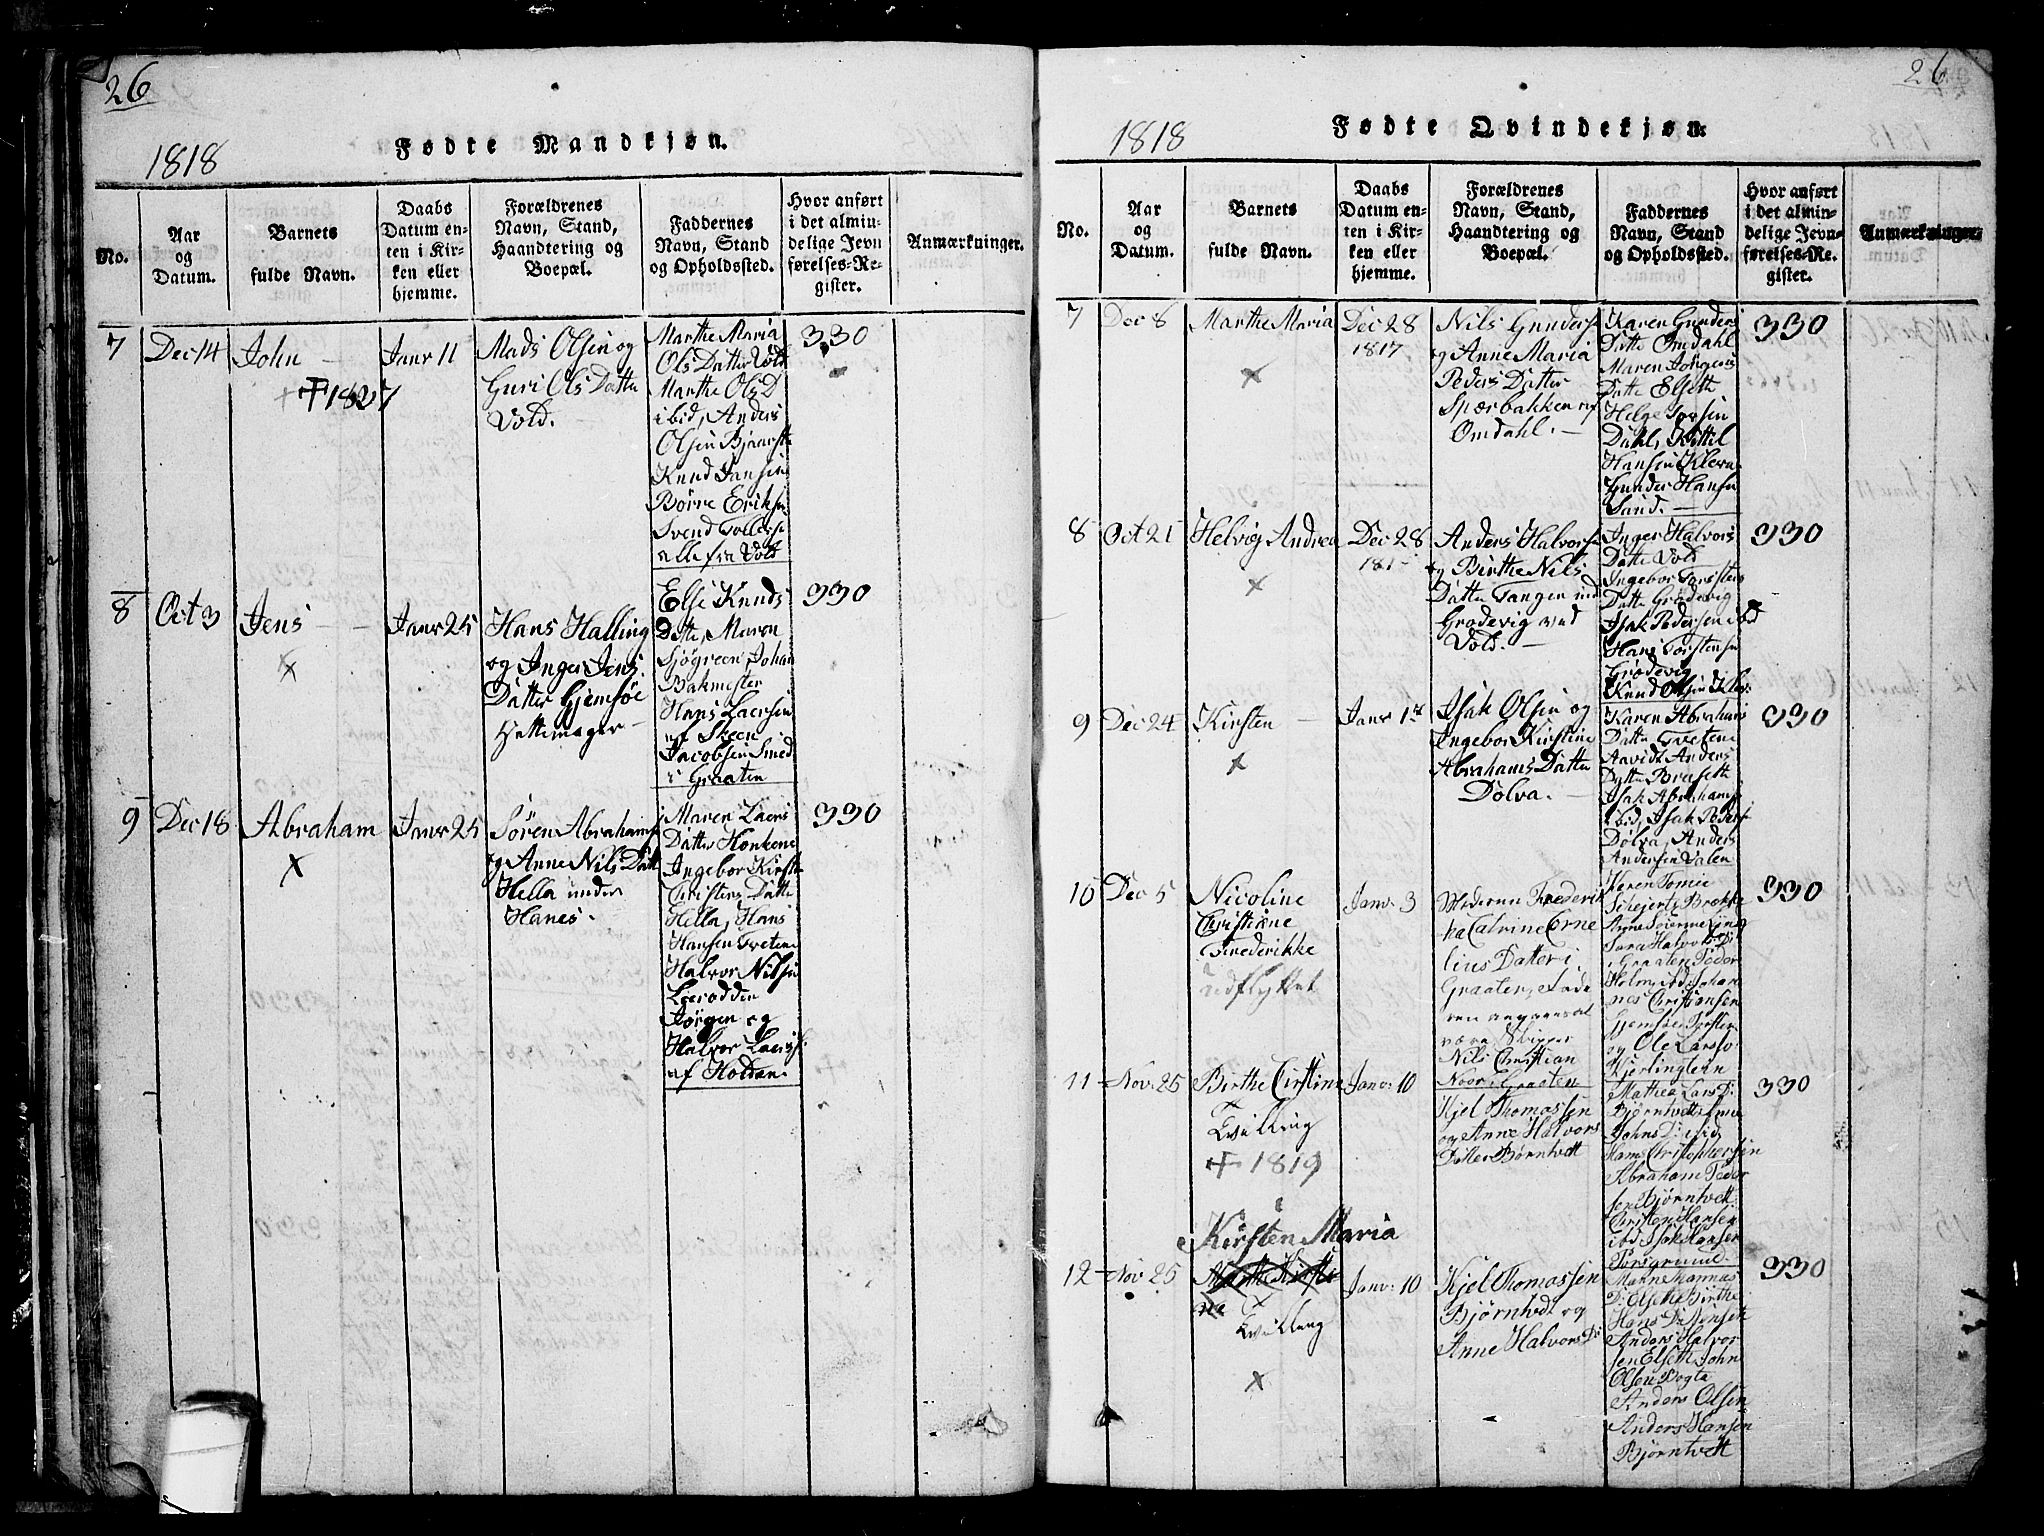 26
1818
Fødte Mandkjøn.
No.
Aar
og
Datum.
Barnets
fulde Navn.
Daabs
Datum en-
ten i Kir-
ken eller
hjemme.
Forældrenes
Navn, Stand,
Haandtering og
Boepæl.
Faddernes
Navn, Stand
og Opholdssted.
Hvor anført
i det almin-
delige Jevn
førelses-Re-
gister.
Anmærkninger.
7
Dec 14
John
+ 1827
Janr 11
Mads Olsen og
Guri Ols Datter
Vold.
Marthe Maria
Ols Datter Vold
Marthe Ols D
ibid, Anders
Olsen
Knud Jansen
Börre Eriksen
Svend
alle fra Vold
330
8
Oct 3
Jens
x
Janr 25
Hans Halling
og Inger Jens
Datter Gjemsöe
Hattemager
Else Knuds
Datter, Maren
Sjögreen, Johan
Bakmester
Hans Laersen
af Skeen
Jacobsen Smed
i Graaten
330
9
Dec 18
Abraham
x
Janr 25
Sören Abrahams
og Anne Nils Datt
Hella under
Hanes.
Maren Laers
Datter Honkene
Ingebor Kirst
Christens Datter
Hella, Hans
Hansen Tvetene
Halvor Nilsen
Laerodden
Jörgen og
Halvor Laers
af Holden.
330
26
1818
Fødte Qvindekjøn.
No.
Aar
og
Datum.
Barnets
fulde Navn.
Daabs
Datum en-
ten i Kir-
ken eller
hjemme.
Forældrenes
Navn, Stand,
Haandtering og
Boepæl.
Faddernes
Navn, Stand
og Opholdssted.
Hvor anført
i det almin-
delige Jevn-
førelses-Re-
gister.
Anmærkninger.
7
Dec 8
Marthe Maria
x
Dec 28
1817
Nils Gunders
og Anne Maria
Peders Datter
Spærbakken
Omdahl.
Karen Gunders
Datte Omdahl
Maren Jörgens
Datte Elseth
Helge
Dahl, Kittil
Hansen Kleva
Gunder Hansen
Sand.
330
8
Oct 21
Helvig Andrea
x
Dec 28
181
Anders Halvorsen
og Birthe Nils
Datter Tangen
Grödevig
Vold.
Inger Halvors
Datte Vold
Ingebor Torsten
Datte Grödevig
Isak Pedersen ibd
Hans Torstensen
Grödevig
Knud Olsen Klev
330
9
Dec 24
Kirsten
x
Janr 1
Isak Olsen og
Ingebor Kirstine
Abrahams Datter
Dölva.
Karen Abrahams
Datter Tvetene
Anders
Datte
Isak Abrahams
ibid, Isak Peders
Dölva, Anders
Andersen Valen
330
10
Dec 5
Nicoline
Christiane
Frederikke
udflyttet
Janv: 3
Moderen Frederik
ka Catrine Corne
lius Datter i
Graaten, Fade
ren angaves at
være Skipper
Nils Christian
Noor i Graaten
Karen Tomie
Brokke
Anne
Sara Halvors D:
i Graaten Peder
Holm, ibd Johan
nes Christiansen
Gjemsöe
og Ole Larss.
Kjerlingtein
330
11
Nov: 25
Birthe Cirstine
x
Tvilling
+ 1819
Janv: 10
Kjel Thomassen
og Anne Halvors
Datter Børntvett
Mathea Lars D:
Bjørntvett
Johns D: ibid
Hans Christophersen
Abraham Peder
sen Bjørntvett
Christen Hansen
ibd Isak Hansen
Porsgrund
330
12
Nov: 25
Kirsten Maria
x
Tvilling
x
Janv: 10
Kjel Thomassen
Bjørntvedt og
Anne Halvors D:
D: Elseth Birthe
Hans D: Jensen
Anders Halvor
sen Elseth John
Olsen
Anders Olsen
Anders Hansen
Bjørntvett
330